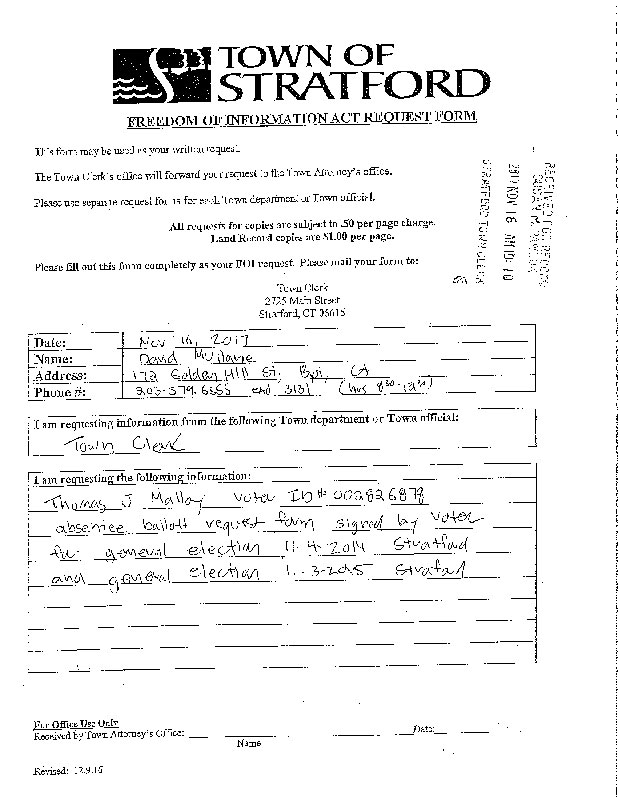 TOWN OF
STRATFORD
FREEDOM OF INFORMATION ACT REQUEST FORM
This form may be used as your written request.
The Town Clerk's office will forward your request to the Town Attorney's office.
Please use separate request for us for each Town department or Town official.
All requests for copies are subject to .50 per page charge.
Land Record copies are $1.00 per page.
Please fill out this form completely as your FOI request. Please mail your form to:
Town Clerk
2725 Main Street
Stratford, CT 06615
RECEIVED FOR RECORD
2017 NOV 16 AM 10: 10
STRATFORD TOWN CLERK
Date: Nov 16, 2017
Name: David
Address: 172 Golden Hill St,
Phone #: 203-579.6555 ext 3131 (hrs 8:30-12:30)
I am requesting information from the following Town department or Town official:
Town Clerk
I am requesting the following information:
Thomas J Malloy voter ID# 002826879
absentee ballott request form signed by voter
for general election 11-4-2014 Stratford
and general election 3-2015 Stratford
For Office Use Only
Received by Town Attorney's Office:
Date:
Name
Revised: 12.9.16